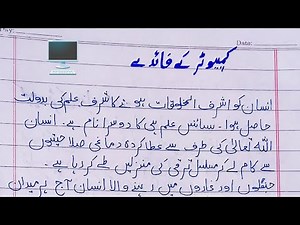 Date:
کمپیوٹر کے فائدے
انسان کو اشرف المخلوقات ہونے کا شرف علم کی بدولت
حاصل ہوا۔ سائنس علم ہی کا دوسرا نام ہے۔ انسان
اللہ تعالیٰ کی طرف سے عطا کردہ دماغی صلاحیتوں
سے کام لے کر مسلسل ترقی کی منزلیں طے کر رہا ہے۔
جنگلوں اور غاروں میں رہنے والا انسان آج ہر میدان